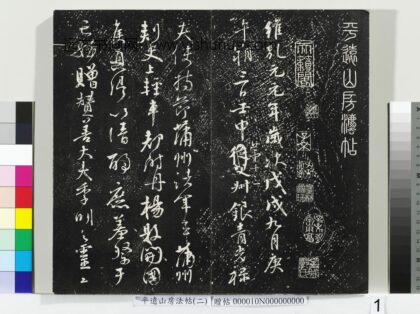 平遠山房法帖
維乾元元年歲次戊戌九月庚
午朔三日壬申第十三叔銀青光祿
夫使持節蒲州諸軍事蒲州
刺史上輕車都尉丹楊縣開國
侯真卿以清酌庶羞祭于
亡姪贈贊善大夫季明之靈
平遠山房法帖(二) 贈帖 000010N000000000
1